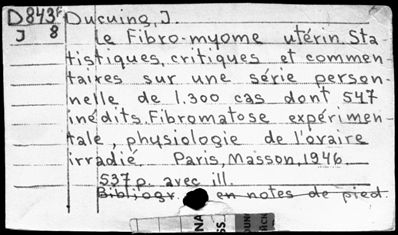 D843f Ducuing, J.
J 8 Le Fibro-myome utérin. Sta-
tistiques, critiques et commen-
taires sur une série person-
nelle de 1.300 cas dont 547
inédits. Fibromatose expérimen-
tale, physiologie de l'ovaire
irradié. Paris, Masson, 1946.
537 p. avec ill.
Bibliogr. en notes de pied.